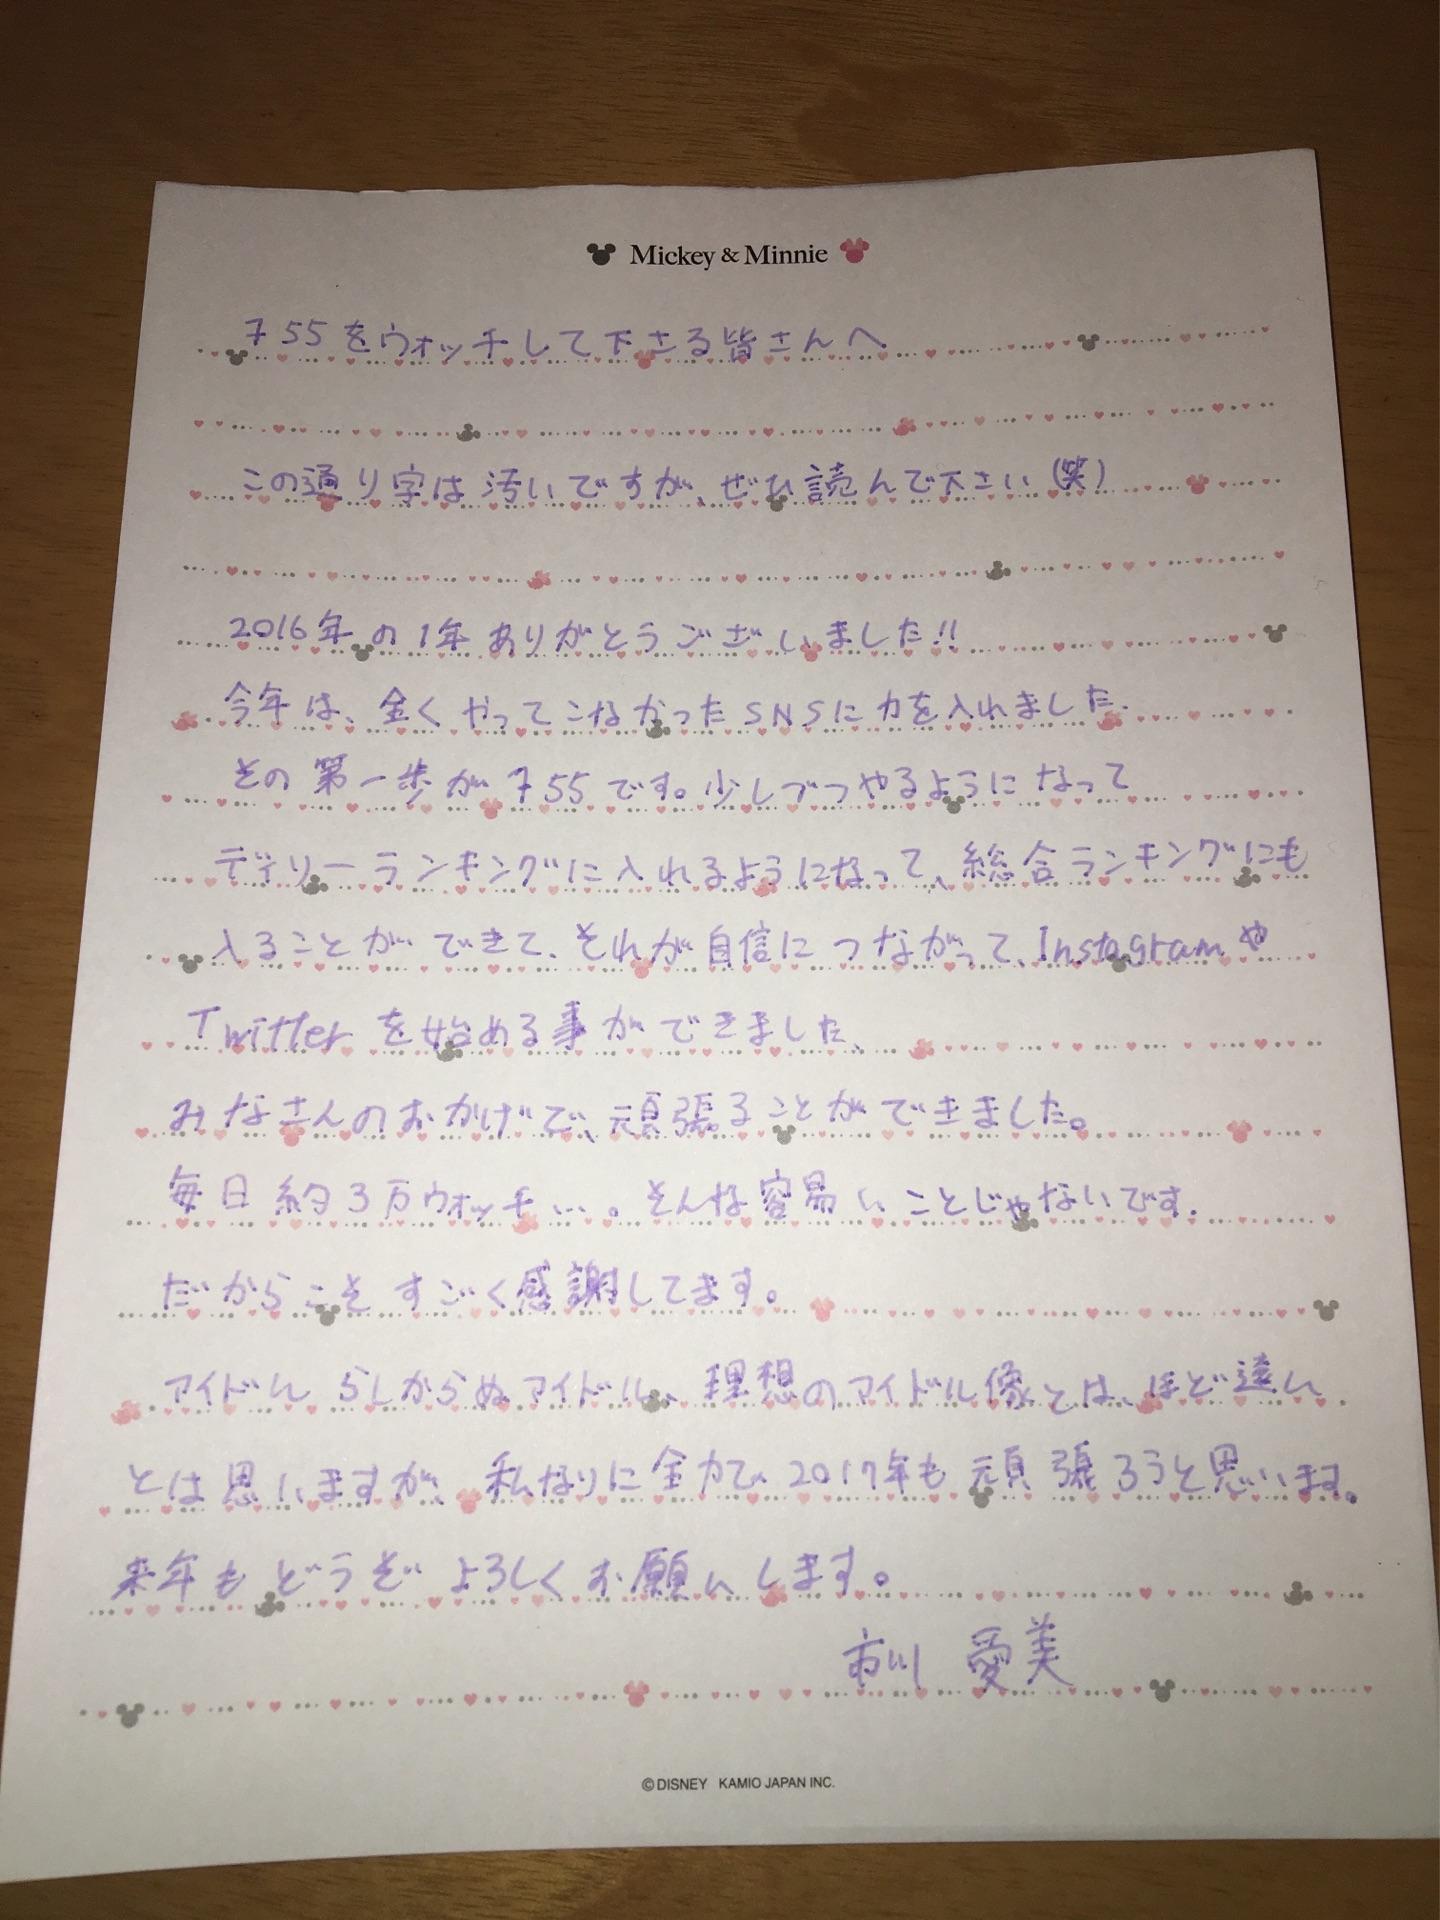 Mickey & Minnie
755をウォッチして下さる皆さんへ
この通り字は汚いですが、ぜひ読んで下さい(笑)
2016年の1年ありがとうございました!!
今年は、全くやってこなかったSNSに力を入れました。
その第一歩が755です。少しづつやるようになって
デイリーランキングに入れるようになって、総合ランキングにも
入ることができて、それが自信につながって、Instagramや
Twitterを始める事ができました、
みなさんのおかげで、頑張ることができました。
毎日約3万ウォッチ…。そんな容易いことじゃないです.
だからこそすごく感謝してます。
アイドルらしからぬアイドル、理想のアイドル像とは、ほど遠い
とは思いますが、私なりに全力で、2017年も頑張ろうと思います。
来年もどうぞよろしくお願いします。
市川 愛美
©DISNEY KAMIO JAPAN INC.